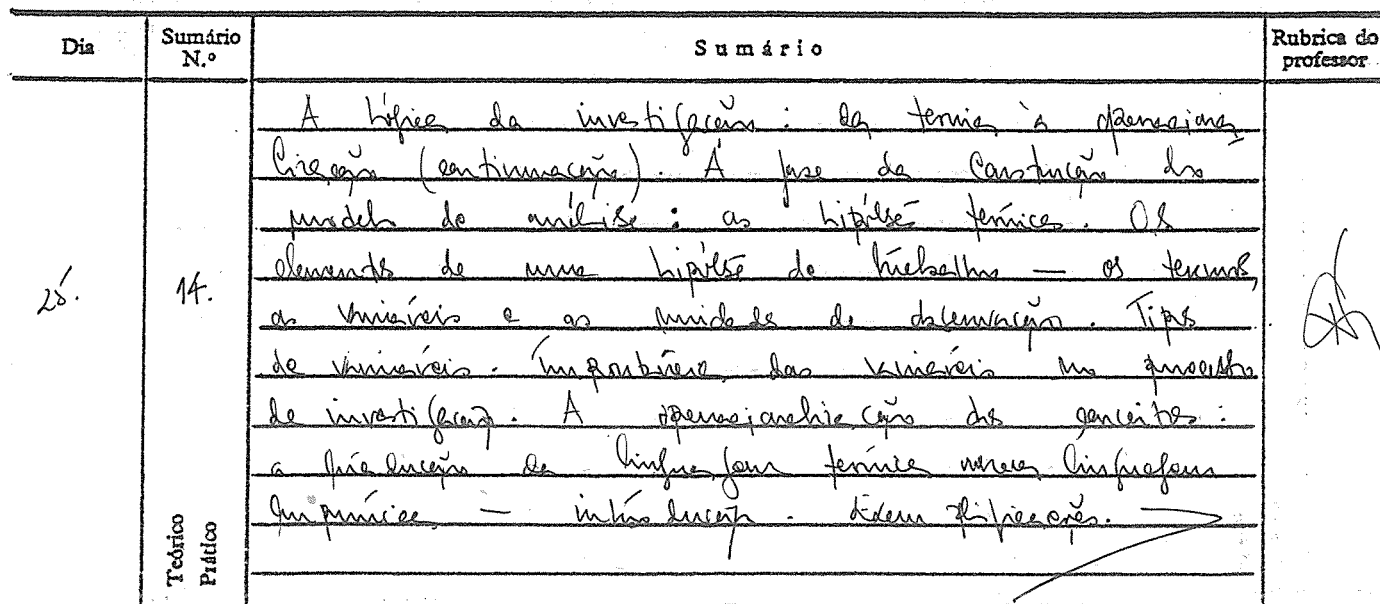 Dia
Sumário N.º
Sumário
Rubrica do professor
25.
14.
A lógica da investigação: da teoria à operaciona
lização (continuação). A fase da Construção do
modelo de análise: as hipóteses teóricas. Os
elementos de uma hipótese de trabalho — os termos,
as variáveis e as unidades de observação. Tipos
de variáveis. Importância das variáveis no processo
de investigação. A operacionalização dos conceitos:
a da linguagem teórica linguagem
empírica — introdução. Exemplificações.
Teórico
Prático